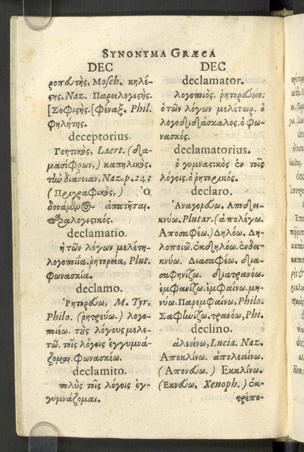 SYNONYMA GRÆCA
DEC
ροπότης, Mosch. κηλέ-
ςης, Naz. Παραλογιςής.
[Σοφιςής.[Φέναξ. Phil.
Φηλήτης.
deceptorius
Γοητικὸς, Laert. καπηλικὸς.
διάνοιαν, Naz. p. 243
(Περιγραφικὸς,) Ὁ
ἀπατῆσαι.
declamatio.
ἡ τῶν λόγων μελέτη.
λογοποιΐα. ῥητορεία, Plut.
Φωνασκία.
declamo.
Ῥητορεύω, M. Tyr.
Philo. (ῥητρεύω.) λογο-
ποιέω. τὺς λόγους μελε-
τῶ. τοῖς λόγοις ἐγγυμνά-
ζομαι. Φωνασκέω.
declamito.
πολὺς τοῖς λόγοις ἐγ-
γυμνάζομαι.
DEC
declamator.
λογοποιὸς. ῥητορεύων.
ὁ τῶν λόγων μελέτωρ. ὁ
λογοδιδάσκαλος. ὁ φω-
νασκός.
declamatorius.
ὁ γυμναστικὸς ἐν τοῖς
λόγοις. ὁ ῥητορικὸς.
declaro.
Ἀναγορεύω, Αποδεικ-
νύω. Plutar. (ἀπολέγω.
Αποσαφέω.) Δηλόω. Δη-
λοποιῶ. ἐκδηλόω. ἐνδεικ-
νύω. Διασαφέω. δια-
σαφηνίζω. διατρανόω.
ἐμφανίζω. ἐμφαίνω. μη-
νύω. Παρεμφαίνω, Philo.
Σαφηνίζω. τρανόω, Phi.
declino.
ἀλεείνω, Lucia. Naz.
Αποκλίνω. ἀπολεαίνω.
(Απονεύω.) Εκκλίνω.
(Εκνεύω, Xenoph.) ἐκ-
τρέπο-